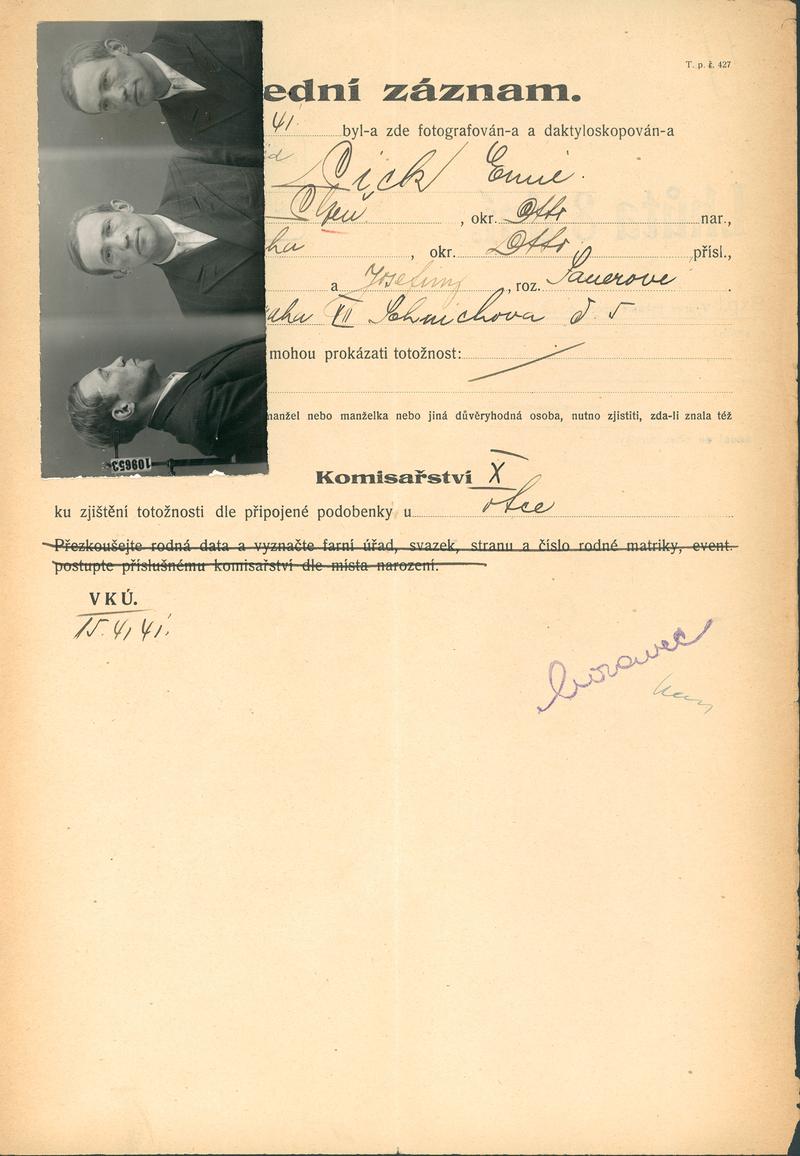 T. p. č. 427
ední záznam.
41 byl-a zde fotografován-a a daktyloskopován-a
Pick Emil
, okr. Otto nar.,
ha , okr. Otto přísl.,
a Josefiny , roz. Sauerové .
aha VII Schnichova č 5
mohou prokázati totožnost:
manžel nebo manželka nebo jiná důvěryhodná osoba, nutno zjistiti, zda-li znala též
Komisařství X
ku zjištění totožnosti dle připojené podobenky u otce
Přezkoušejte rodná data a vyznačte farní úřad, svazek, stranu a číslo rodné matriky, event.
postupte příslušnému komisařství dle místa narození.
VKÚ.
15. 4. 41.
Moravec
109653